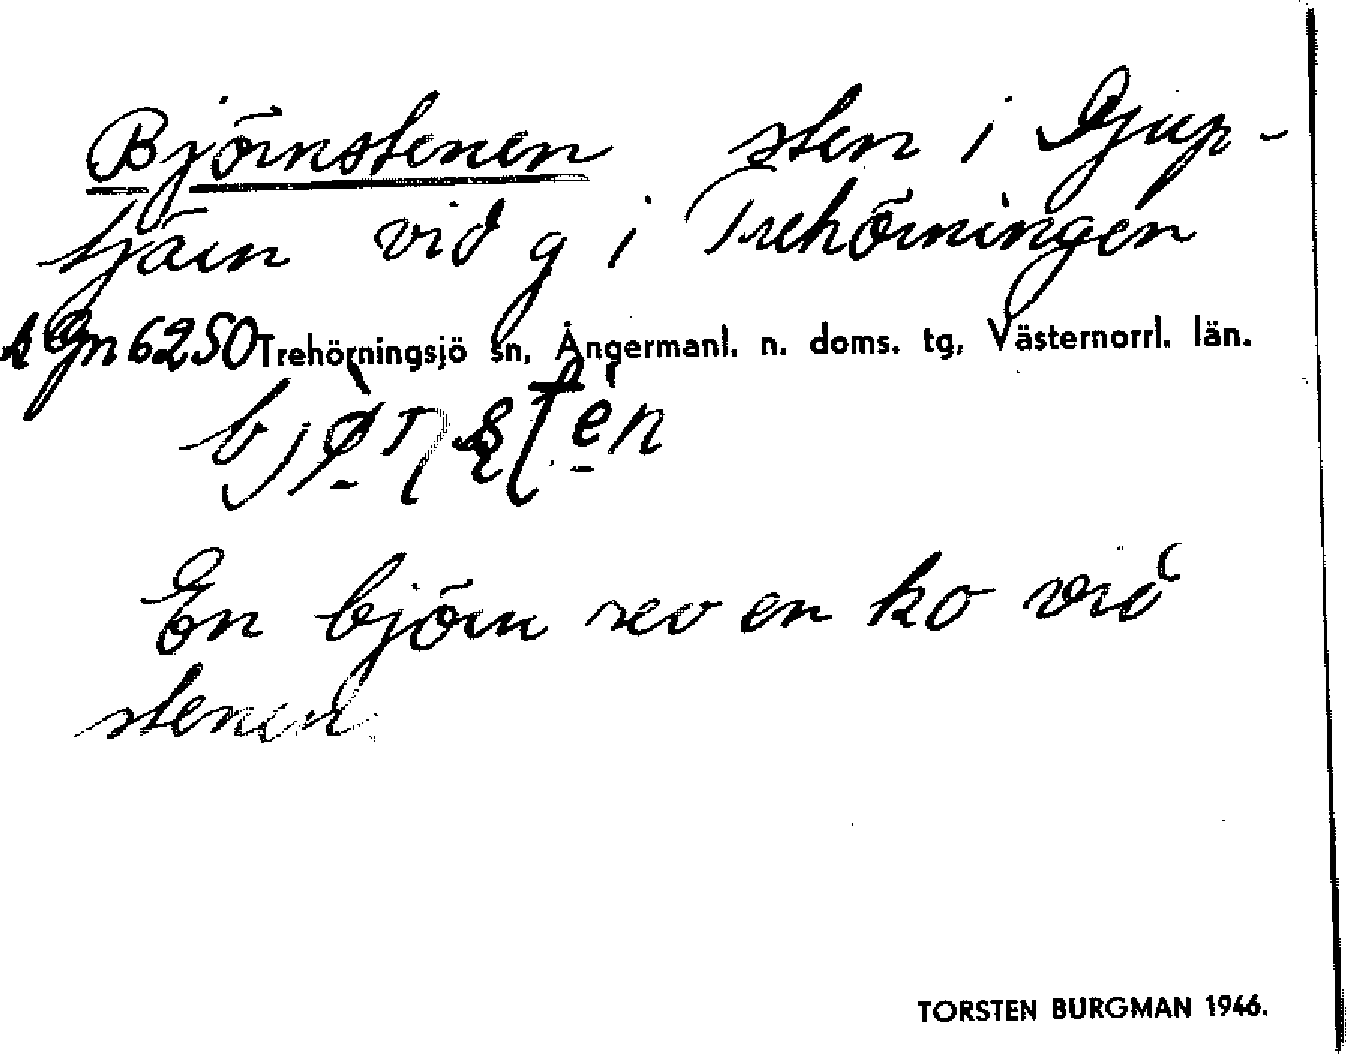 Björnstenen sten i Djup-
tjärn vid g i Trehörningen
Gn 6250 Trehörningsjö sn, Ångermanl. n. doms. tg, Västernorrl. län.
En björn rev en ko vid
stenen
TORSTEN BURGMAN 1946.